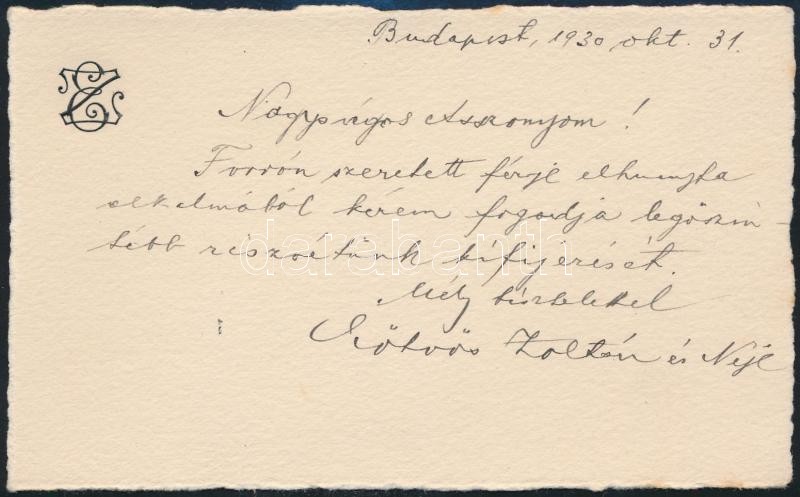 Budapest, 1930 okt. 31.
Nagyságos Asszonyom!
Forrón szeretett férje elhunyta
alkalmából kérem fogadja legőszin-
tébb részvétünk kifejezését.
Mély tisztelettel
Eötvös Zoltán és Neje
darabanth